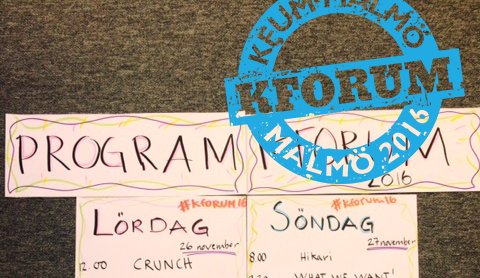 KEUM-MALMÖ
KFORUM
MALMÖ 2016
PROGRAM
KFORUM
2016
#KFORUM16
LÖRDAG
26 november
12.00 CRUNCH
#kforum16
SÖNDAG
27 november
8.00 Hikari
WHAT WE WANT!